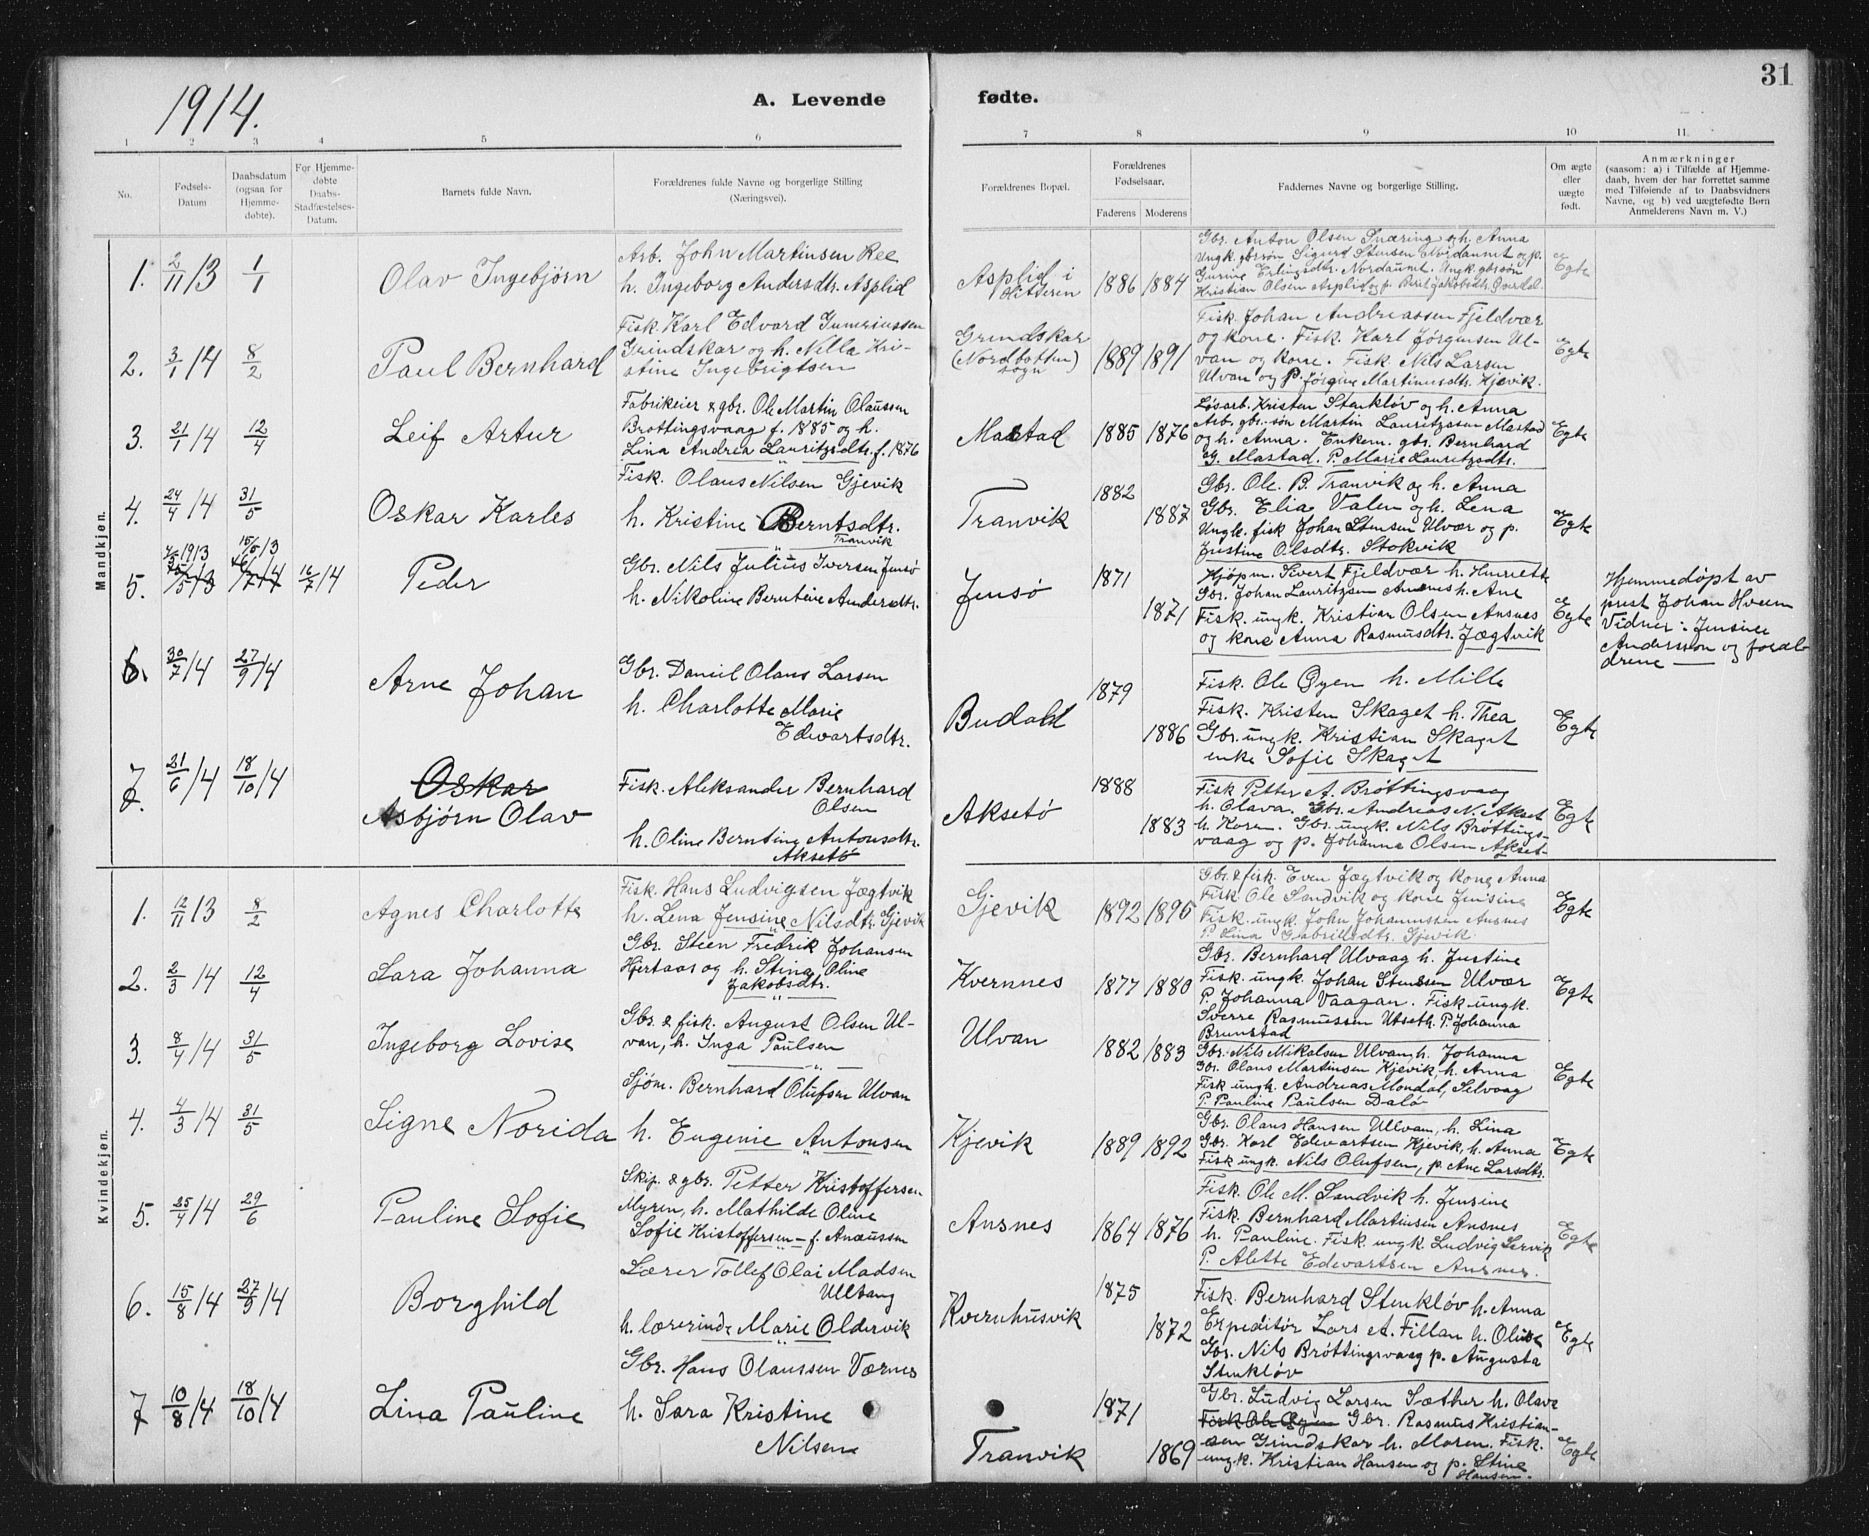 1914.
A. Levende
fødte.
31
1 2 3 4 5 6 7 8 9 10 11.
No.
Fødsels-
Datum
Daabsdatum
(ogsaa for
Hjemme-
døbte).
For Hjemme-
døbte
Daabs-
Stadfæstelses-
Datum.
Barnets fulde Navn.
Forældrenes fulde Navne og borgerlige Stilling
(Næringsvei).
Forældrenes Bopæl.
Forældrenes
Fødselsaar.
Faderens Moderens
Faddernes Navne og borgerlige Stilling.
Om ægte
eller
uægte
født.
Anmærkninger
(saasom: a) i Tilfælde af Hjemme-
daab, hvem der har forrettet samme
med Tilføiende af to Daabsvidners
Navne, og b) ved uægtefødte Børn
Anmelderens Navn m. V.)
Mandkjøn.
1. 2/11 13 1/1
Olav Ingebjørn
Arb. John Martinsen Ree
h. Ingeborg Andersdtr. Asplid
Asplid i
Hitteren
1886 1884
Gbr. Anton Olsen Snæring og h. Anna
Ungk. gbrsøn Sigurd Stensen Nordaunet og p.
Gurine Erlingsdtr. Nordaunet. Ungk. gbrsøn
Kristian Olsen Asplid og p. Berit Jakobsdtr.
Egte
2. 3/1 14 8/2
Paul Bernhard
Fisk. Karl Edvard
Grindskar og h. Nilla Kri-
stine Ingebrigtsen
Grindskar
(Nordbotten
sogn
1889 1891
Fisk. Johan Andreassen Fjeldvær
og kone. Fisk. Karl Jørginsen Ul-
van og kone. Fisk. Nils Larsen
Ulvan og p. Jørgine Martinusdtr. Kjevik.
Egte
3. 21/1 14 12/4
Leif Artur
Fabrikeier & gbr. Ole Martin Olaussen
Brottingsvaag f. 1885 og h.
Lina Andrea Lauritzsdtr. f. 1876
Mastad
1885 1876
Løsarb. Kristen Stenkløv og h. Anna
Arb. gbr.-søn Martin Lauritzsen Mastad
og h. Anna. Enkem. gbr. Bernhard
G. Mastad. P. Marie Lauritzsdtr.
Egte
4. 24/4 14 31/5
Oskar Karles
Fisk. Olaus Nilsen Gjevik
h. Kristine Berntsdtr.
Tranvik
Tranvik
1882
1887
Gbr. Ole. B. Tranvik og h. Anna
Gbr. Elia Valen og h. Lena
Ungk. fisk Johan Stensen Ulvær og p.
Justine Olsdtr. Stokvik
Egte
5. 1913 15/5 13 16/7 14
Peder
Gbr. Nils Julius Iversen Jensø
h. Nikoline Berntine Andersdtr.
Jensø
1871
1871
Kjøpm. Sivert Fjeldvær h. Henriette
Gbr. Johan Lauritzsen Ansnes h. Ane
Fisk. ungk. Kristian Olsen Ansnes
og kone Anna Rasmusdtr. Jægtvik
Egte
Hjemmedøpt av
prest Johan Hveem
Vidner: Jensine
Anderssen og foræl-
drene
6. 30/7 14 27/9 14
Arne Johan
Gbr. Daniel Olaus Larsen
h. Charlotte Marie
Edvartsdtr.
Budal
1879
1886
Fisk. Ole Øyen h. Mille
Fisk. Kristen Skaget h. Thea
Gbr. ungk. Kristian Skaget
enke Sofie Skaget
Egte
7. 21/6 14 18/10 14
Oskar
Asbjørn Olav
Fisk. Aleksander Bernhard
Olsen
h. Oline Berntine Antonsdtr.
Aksetø
Aksetø
1888
1883
Fisk Petter A. Brøttingsvaag
h. Olava. Gbr. Andreas N. Akset
h. Karen. Gbr. ungk. Nils Brøttings-
vaag og p. Johanna Olsen Akset
Egte
Kvindekjøn.
1. 12/11 13 8/2
Agnes Charlotte
Fisk. Hans Ludvigsen Jægtvik
h. Lena Jensine Nilsdtr. Gjevik
Gjevik
1892 1895
Gbr. & fisk. Even Jægtvik og kone Anna
Fisk Ole Sandvik og kone Jensine
Fisk. ungk. John Johannssen Ansnes
P. Lina Gabrielsdtr. Gjevik.
Egte
2. 2/3 14 12/4
Sara Johanna
Gbr. Steen Fredrik Johansen
Hjertaas og h. Stina Oline
Jakobsdtr.
Kvernnes
1877 1880
Gbr. Bernhard Ulvaag h. Justine
Fisk. ungk. Johan Stensen Ulvær
P. Johanna Vaagan. Fisk. ungk.
Sverre Rasmussen Utseth. P. Johanna
Brunstad
Egte
3. 8/4 14 31/5
Ingeborg Lovise
Gbr. & fisk. August Olsen Ul-
van, h. Inga Paulsen
Ulvan
1882 1883
Gbr. Nils Mikalsen Ulvan, h. Johanna
Gbr. Olaus Martinsen Kjevik, h. Anna
Fisk ungk. Andreas Mondal, Selvaag
P. Pauline Paulsen Dalø
Egte
4. 4/3 14 31/5
Signe Norida
Sjøm. Bernhard Olufsen Ulvan
h. Eugenie Antonsen
Kjevik
1889 1892
Gbr. Olaus Hansen Ulvan, h. Lina
Gbr. Karl Edevartsen Kjevik, h. Anna
Fisk ungk. Nils Olufsen, p. Ane Larsdtr.
Egte
5. 25/4 14 29/6
Pauline Sofie
Skip. & gbr. Petter Kristoffersen
Myren, h. Mathilde Oline
Sofie Kristoffersen – f. Anæussen
Ansnes
1864 1876
Fisk. Ole M. Sandvik h. Jensine
Fisk. Bernhard Martinsen Ansnes
h. Pauline. Fisk. ungk. Ludvig Lervik
P. Alette Edevartsen Ansnes.
Egte
6. 15/8 14 27/9 14
Borghild
Lærer Tollef Olai Madsen
Ullvang
h. lærerinde Marie Oldervik
Kvernhusvik
1875
1872
Fisk. Bernhard Stenkløv h. Anna
Expeditør Lars A. Fillan h. Oline
Gbr. Nils Brøttingsvaag p. Augusta
Stenkløv
Egte
7 10/8 14 18/10 14
Lina Pauline
Gbr. Hans Olaussen Værnes
h. Sara Kristine
Nilsen
Tranvik
1871
1869
Gbr. Ludvig Larsen Sæther h. Olava
Fisk Ole Øyen Gbr. Rasmus Kristian-
sen Grindskar h. Maren. Fisk.
ungk. Kristian Hansen og p. Stine
Hansen.
Egte